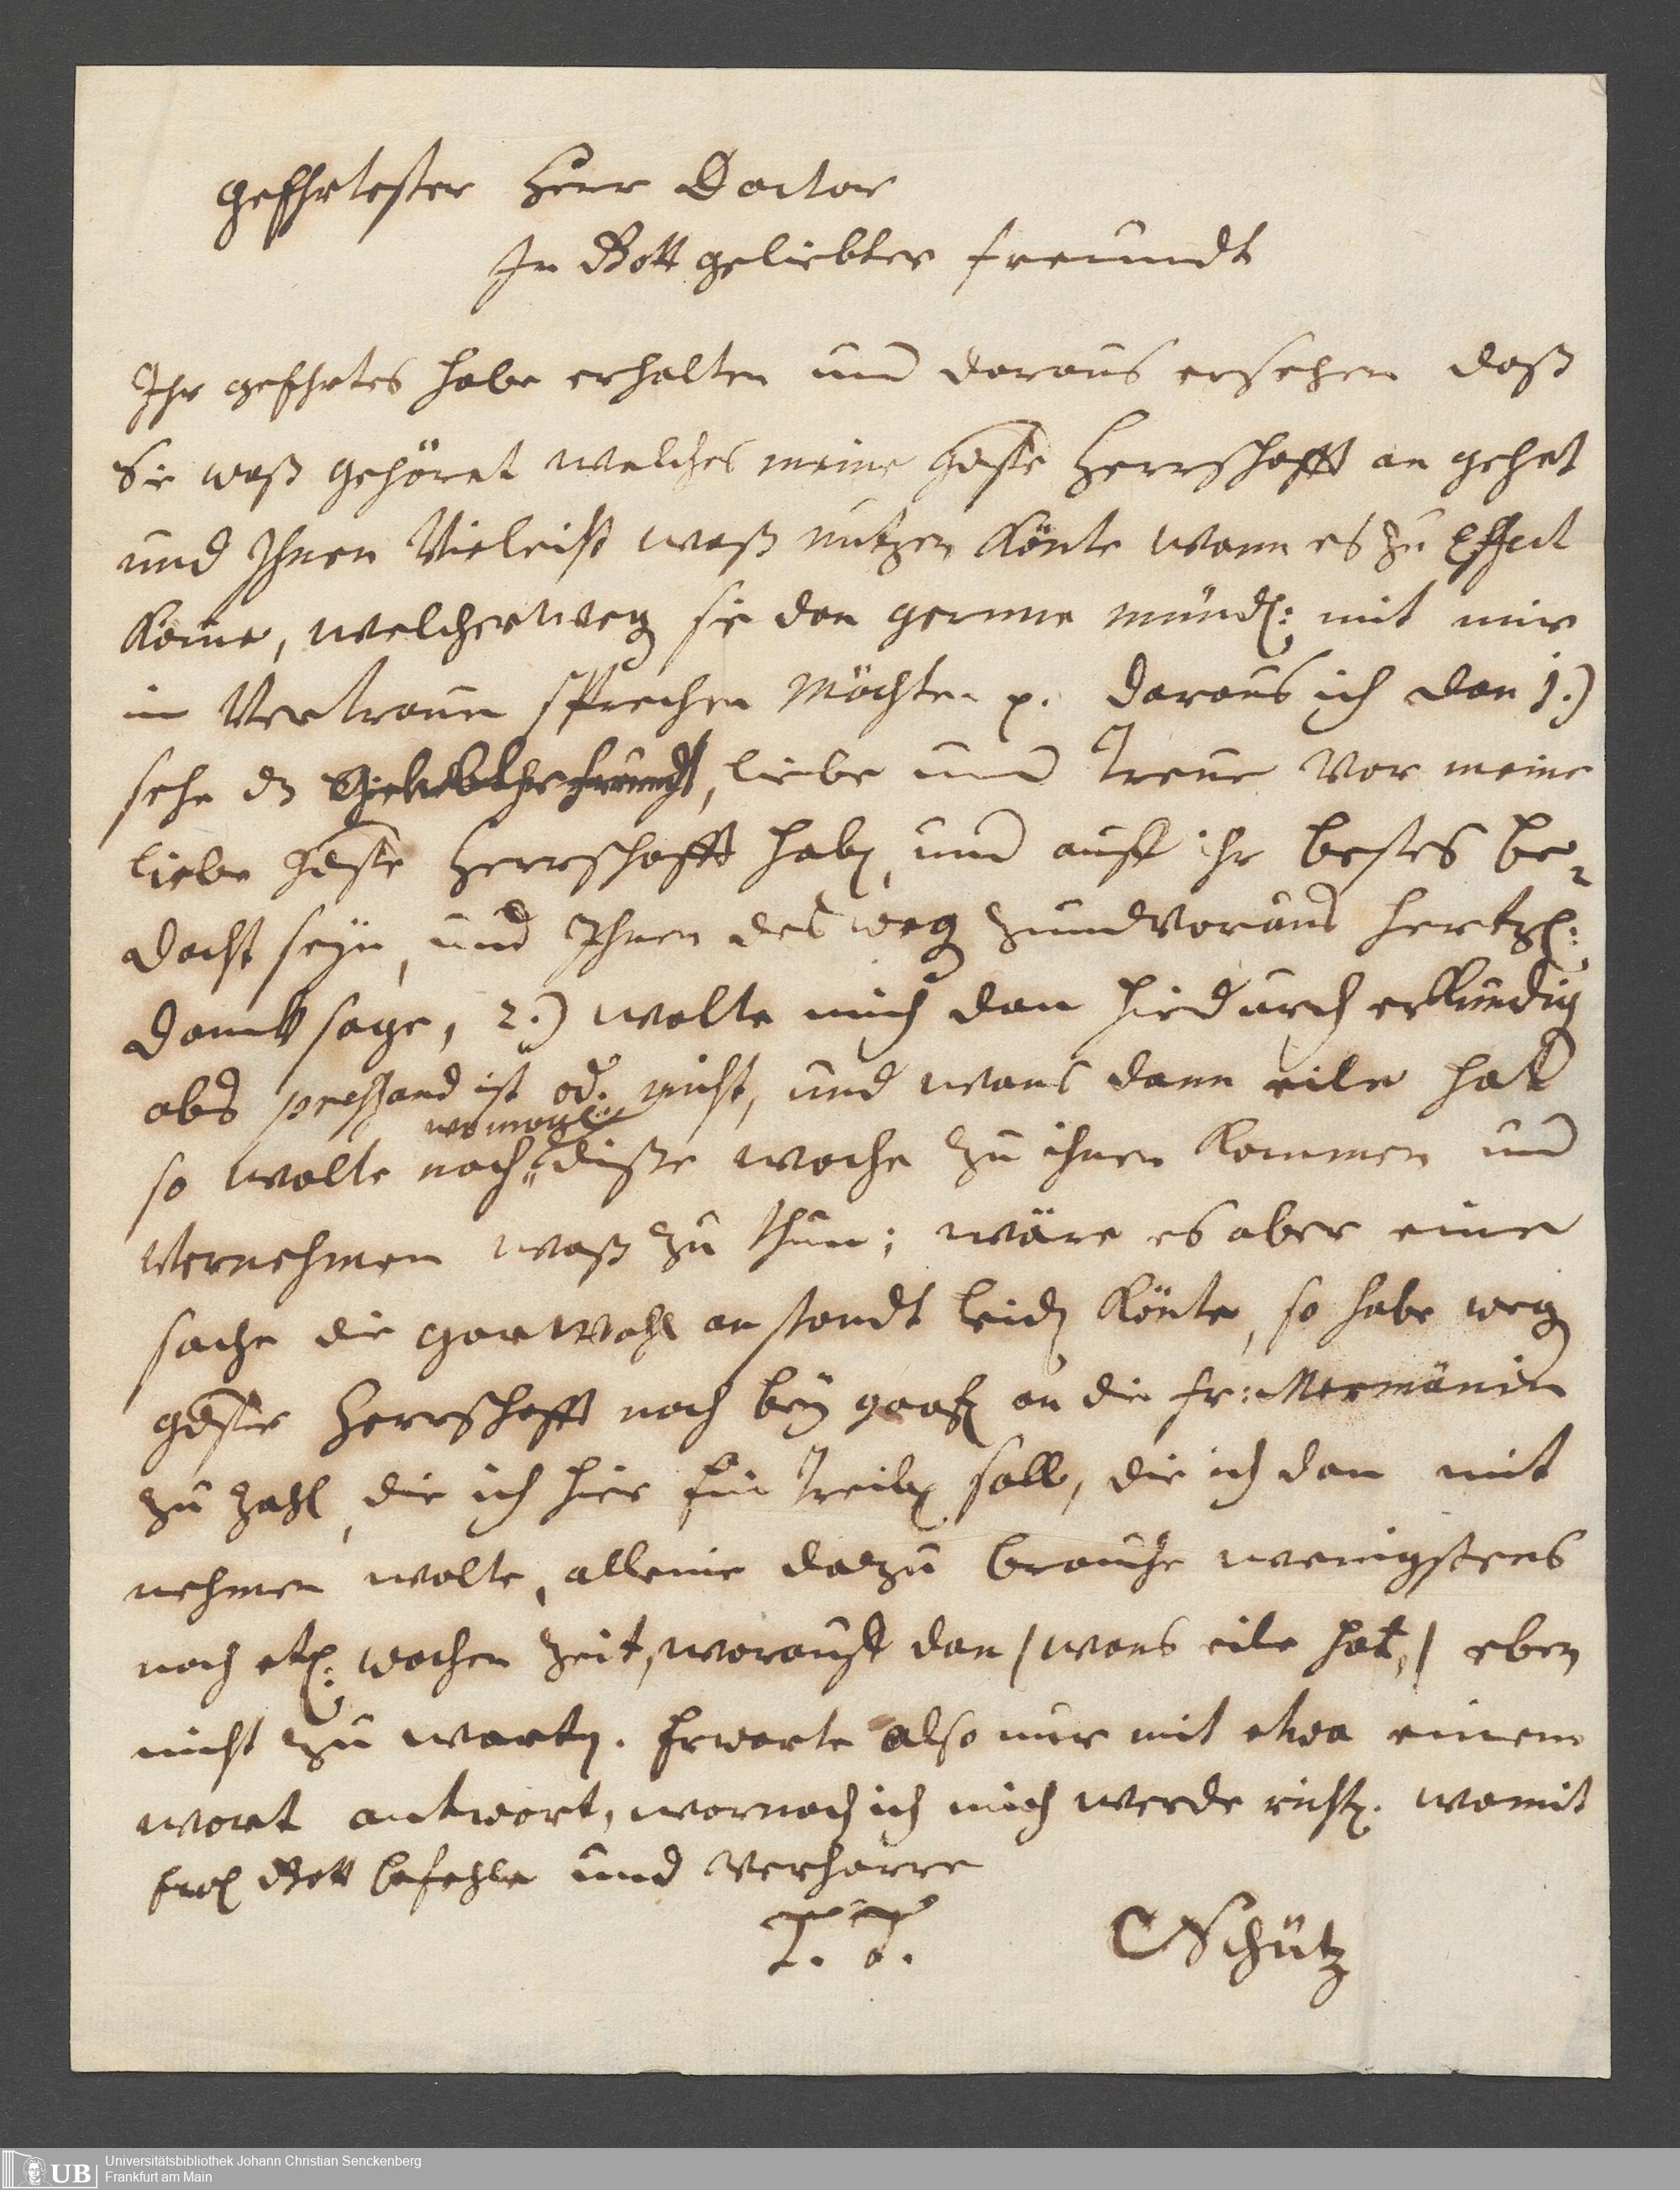 geEhrtester Herr Doctor
In Gott geliebter freundt
Ihr geehrtes habe erhalten und daraus ersehen daß
Sie waß gehöret welches meine gdste Herrschafft an gehet
und Ihnen Vieleicht waß nutzen Könte wann es zu Effect
Käme, welcherweg sie dan gerne mündl: mit mir
in Vertrauen sprechen Möchten p. daraus ich dan 1.)
sehe dz liebe und Treue vor meine
liebe gdste Herrschafft hab, und auff ihr bestes be-
dacht seyn, und Ihnen desweg zumVoraus hertzl:
danck sage, 2.) wolte mich dan hiedurch erkundig
obs pressand ist od. nicht, und wans dann eile hat
womögl:
so wolte noch diße woche zu ihnen Kommen und
Vernehmen waß zu thun; wäre es aber eine
sache die gar wohl anstandt leid Könte, so habe weg
gdster Herrschafft noch bey an die fr: Mermänin
zu zahl, die ich hier soll, die ich dan mit
nehmen wolte, alleine dazu brauche wenigstens
noch etl: wochen Zeit, worauff dan /wans eile hat,/ eben
nicht zu wart. Erwarte also nur mit etwa einem
wort antwort, wornach ich mich werde richt. womit
Gott befehle und verharre
T. T. CSchütz
UB Universitätsbibliothek Johann Christian Senckenberg
Frankfurt am Main